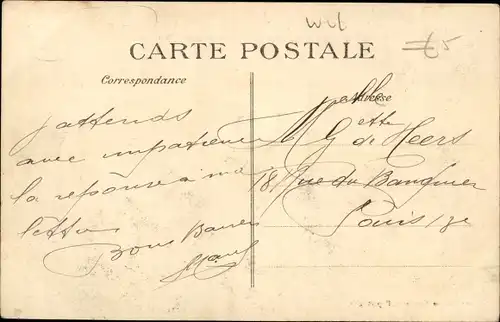 CARTE POSTALE
Correspondance
Adresse
j'attends
avec impatience
la réponse à ma
lettre
Bons Baisers
Melle
de Heers
18 Rue du Banquier
Paris 13e